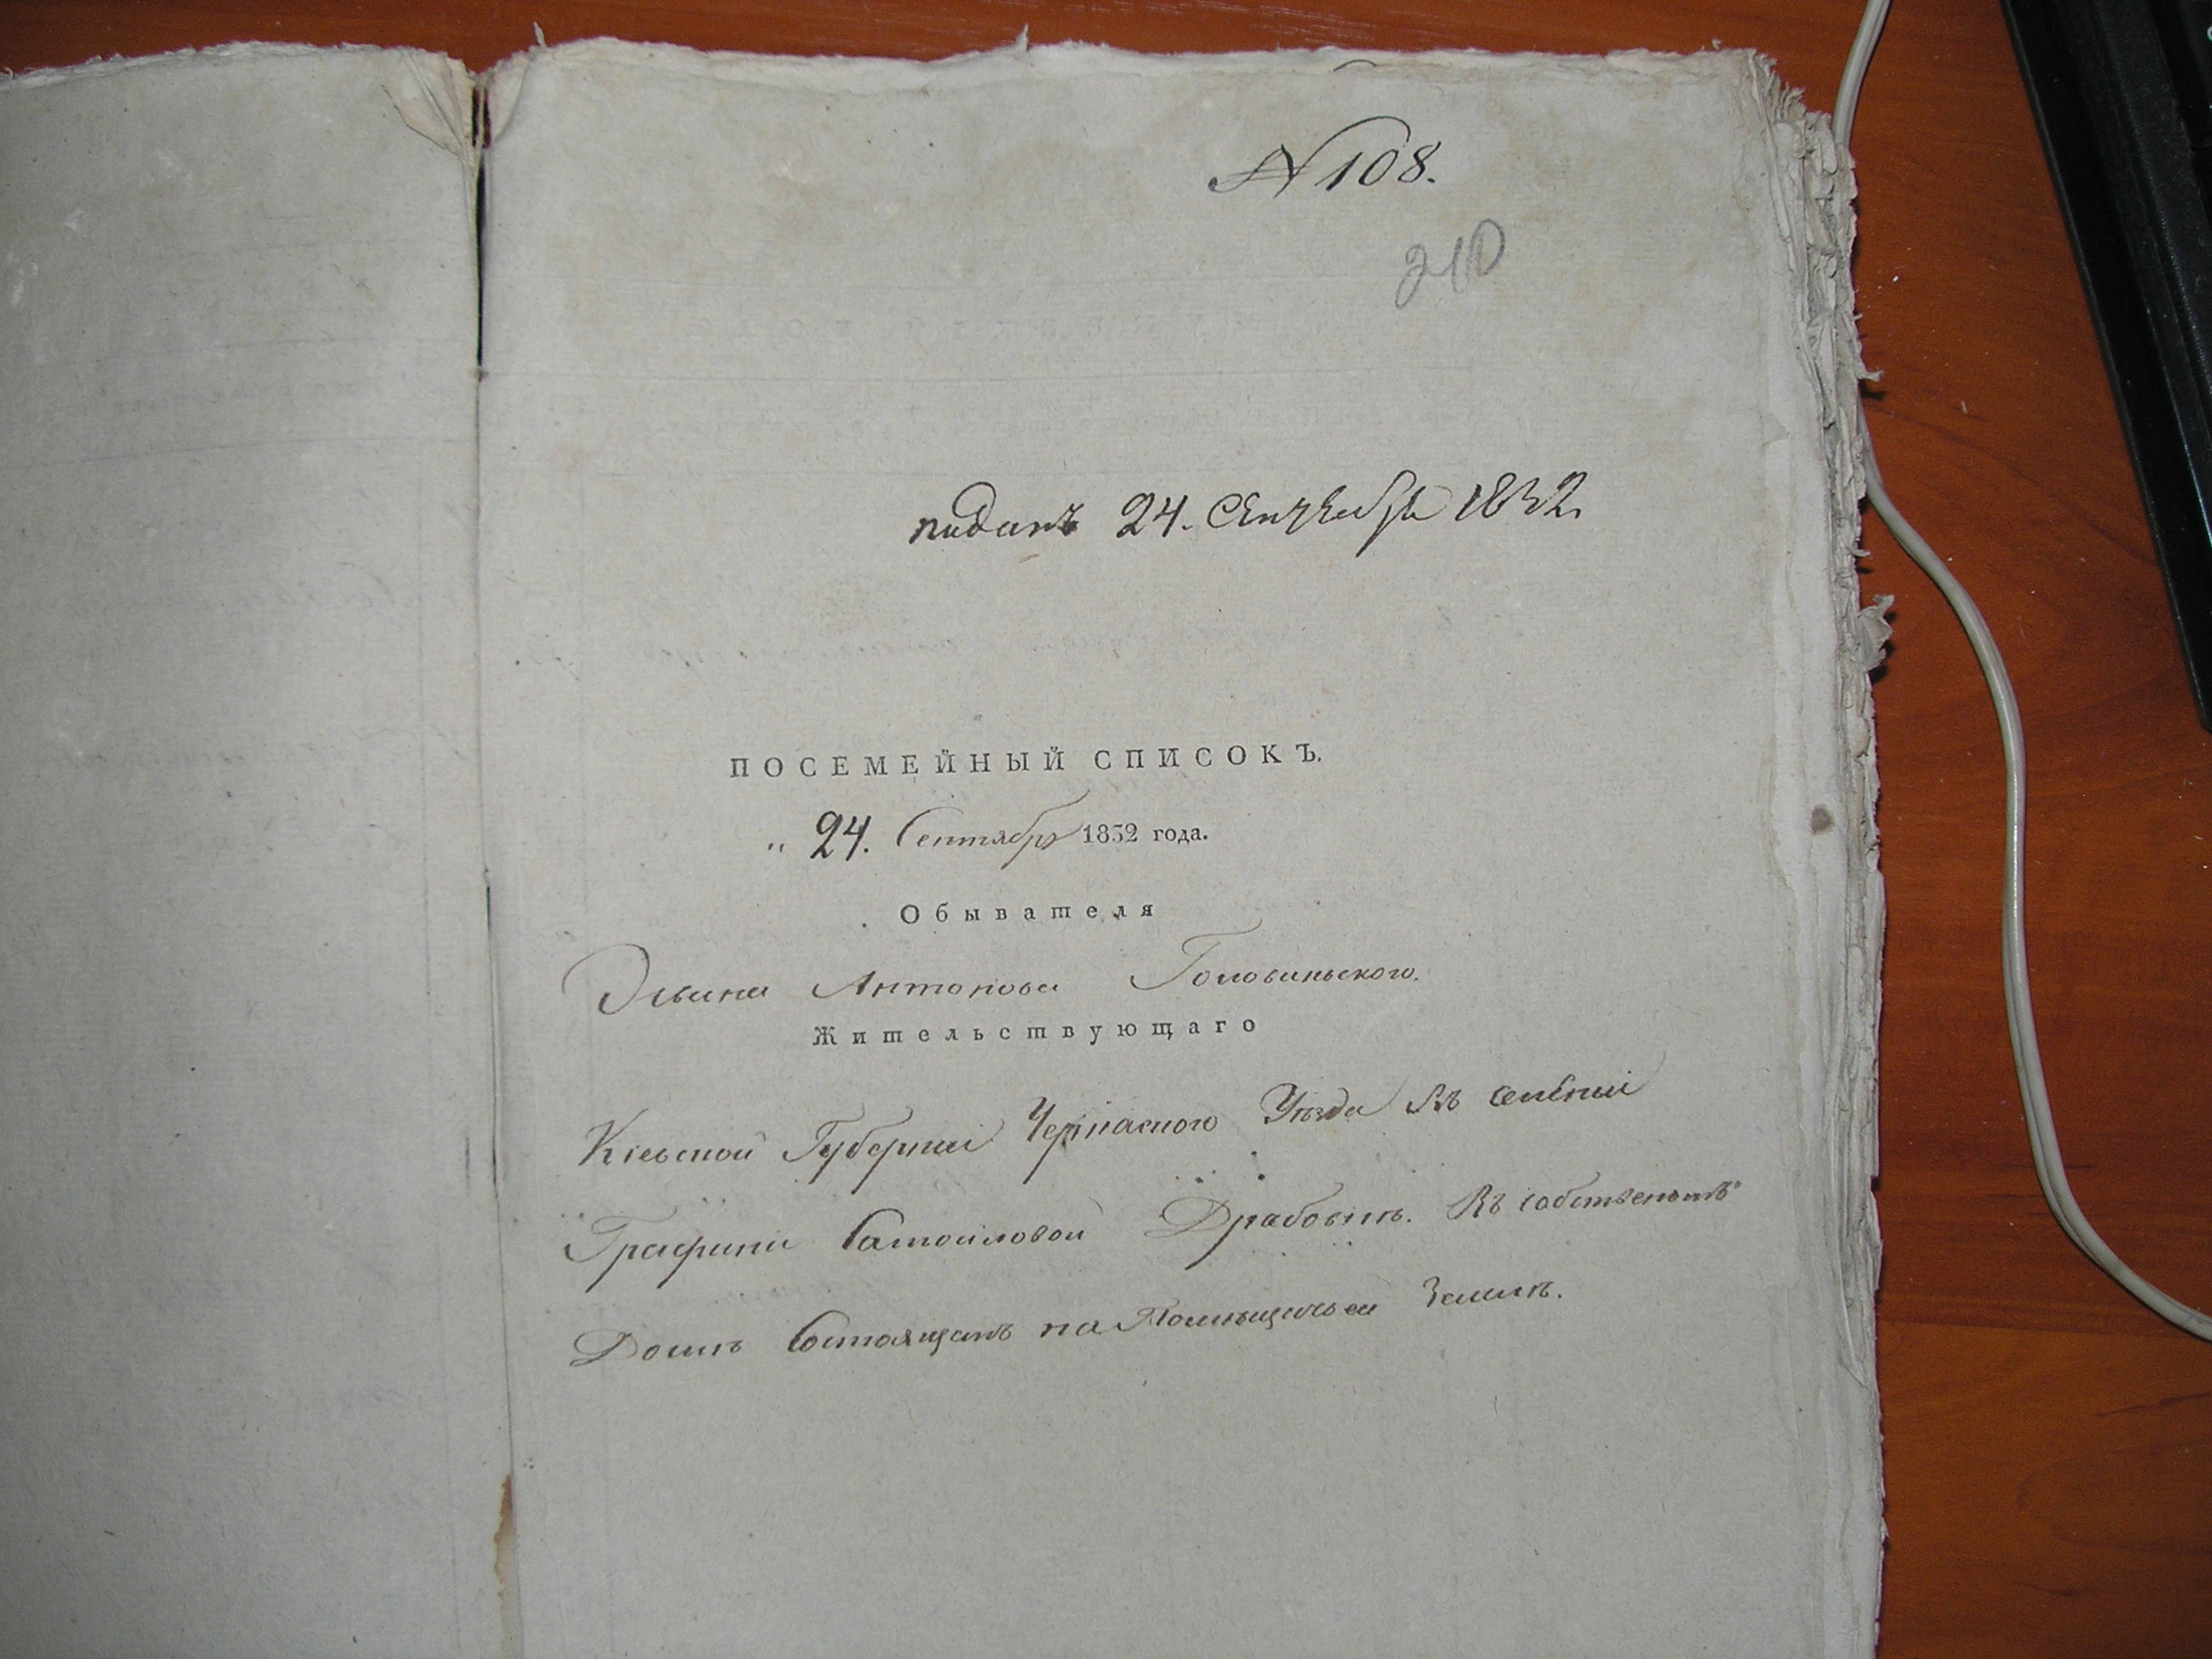 № 108.
210
поданъ 24. Сентебря 1832
ПОСЕМЕЙНЫЙ СПИСОКЪ.
„ 24. Сентября 1832 года.
Обывателя
Антонова Головиньского.
Жительствующаго
Кіевской Губерніи Черкаского Уѣзда Въ селеніи
Графини Самойловой Драбовкѣ. Въ собственомъ
Домѣ Состоящемъ на Помѣщичьей Землѣ.